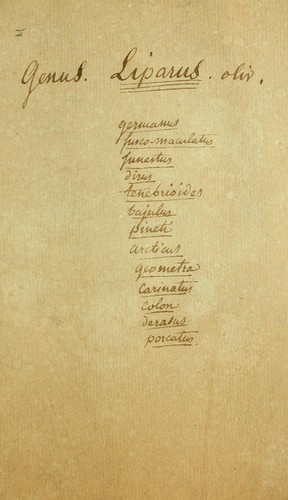 I
Genus. Liparus. oliv.
germanus
fusco-maculatus
funestus
dirus
tenebrioides
bajulus
pineti
arcticus
geometra
carinatus
colon
porcatus.